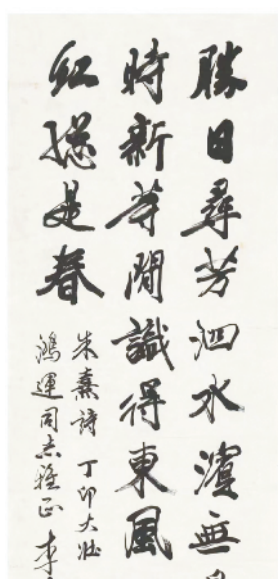 勝日尋芳泗水濱無
時新等閒識得東風
紅總是春
朱熹詩 丁卯大壯
鴻運同志雅正 李